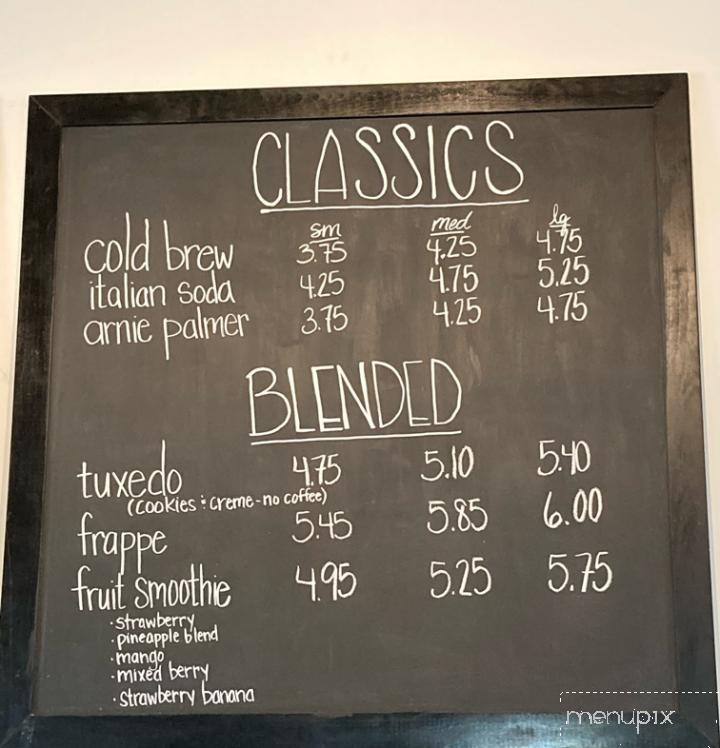 CLASSICS
sm med lg
cold brew 3.75 4.25 4.75
italian soda 4.25 4.75 5.25
arnie palmer 3.75 4.25 4.75
BLENDED
tuxedo 4.75 5.10 5.40
(cookies & creme-no coffee)
frappe 5.45 5.85 6.00
fruit smoothie 4.95 5.25 5.75
·strawberry
·pineapple blend
·mango
·mixed berry
·strawberry banana
menupix